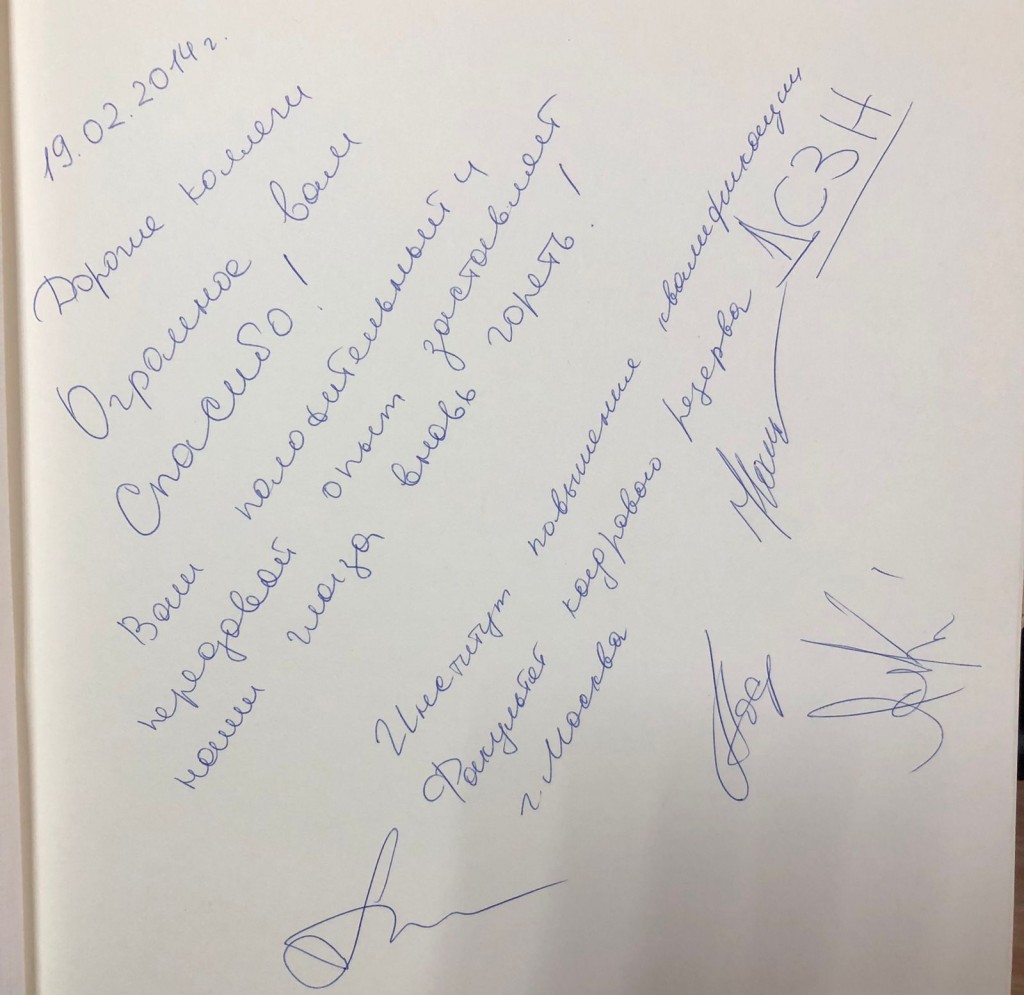 19.02.2014 г.
Дорогие коллеги
Огромное вам
Спасибо!
Ваш положительный и
передовой опыт заставляет
наши глаза вновь гореть!
Институт повышение квалификации
Факультет кадрового резерва ДСЗН
г. Москва